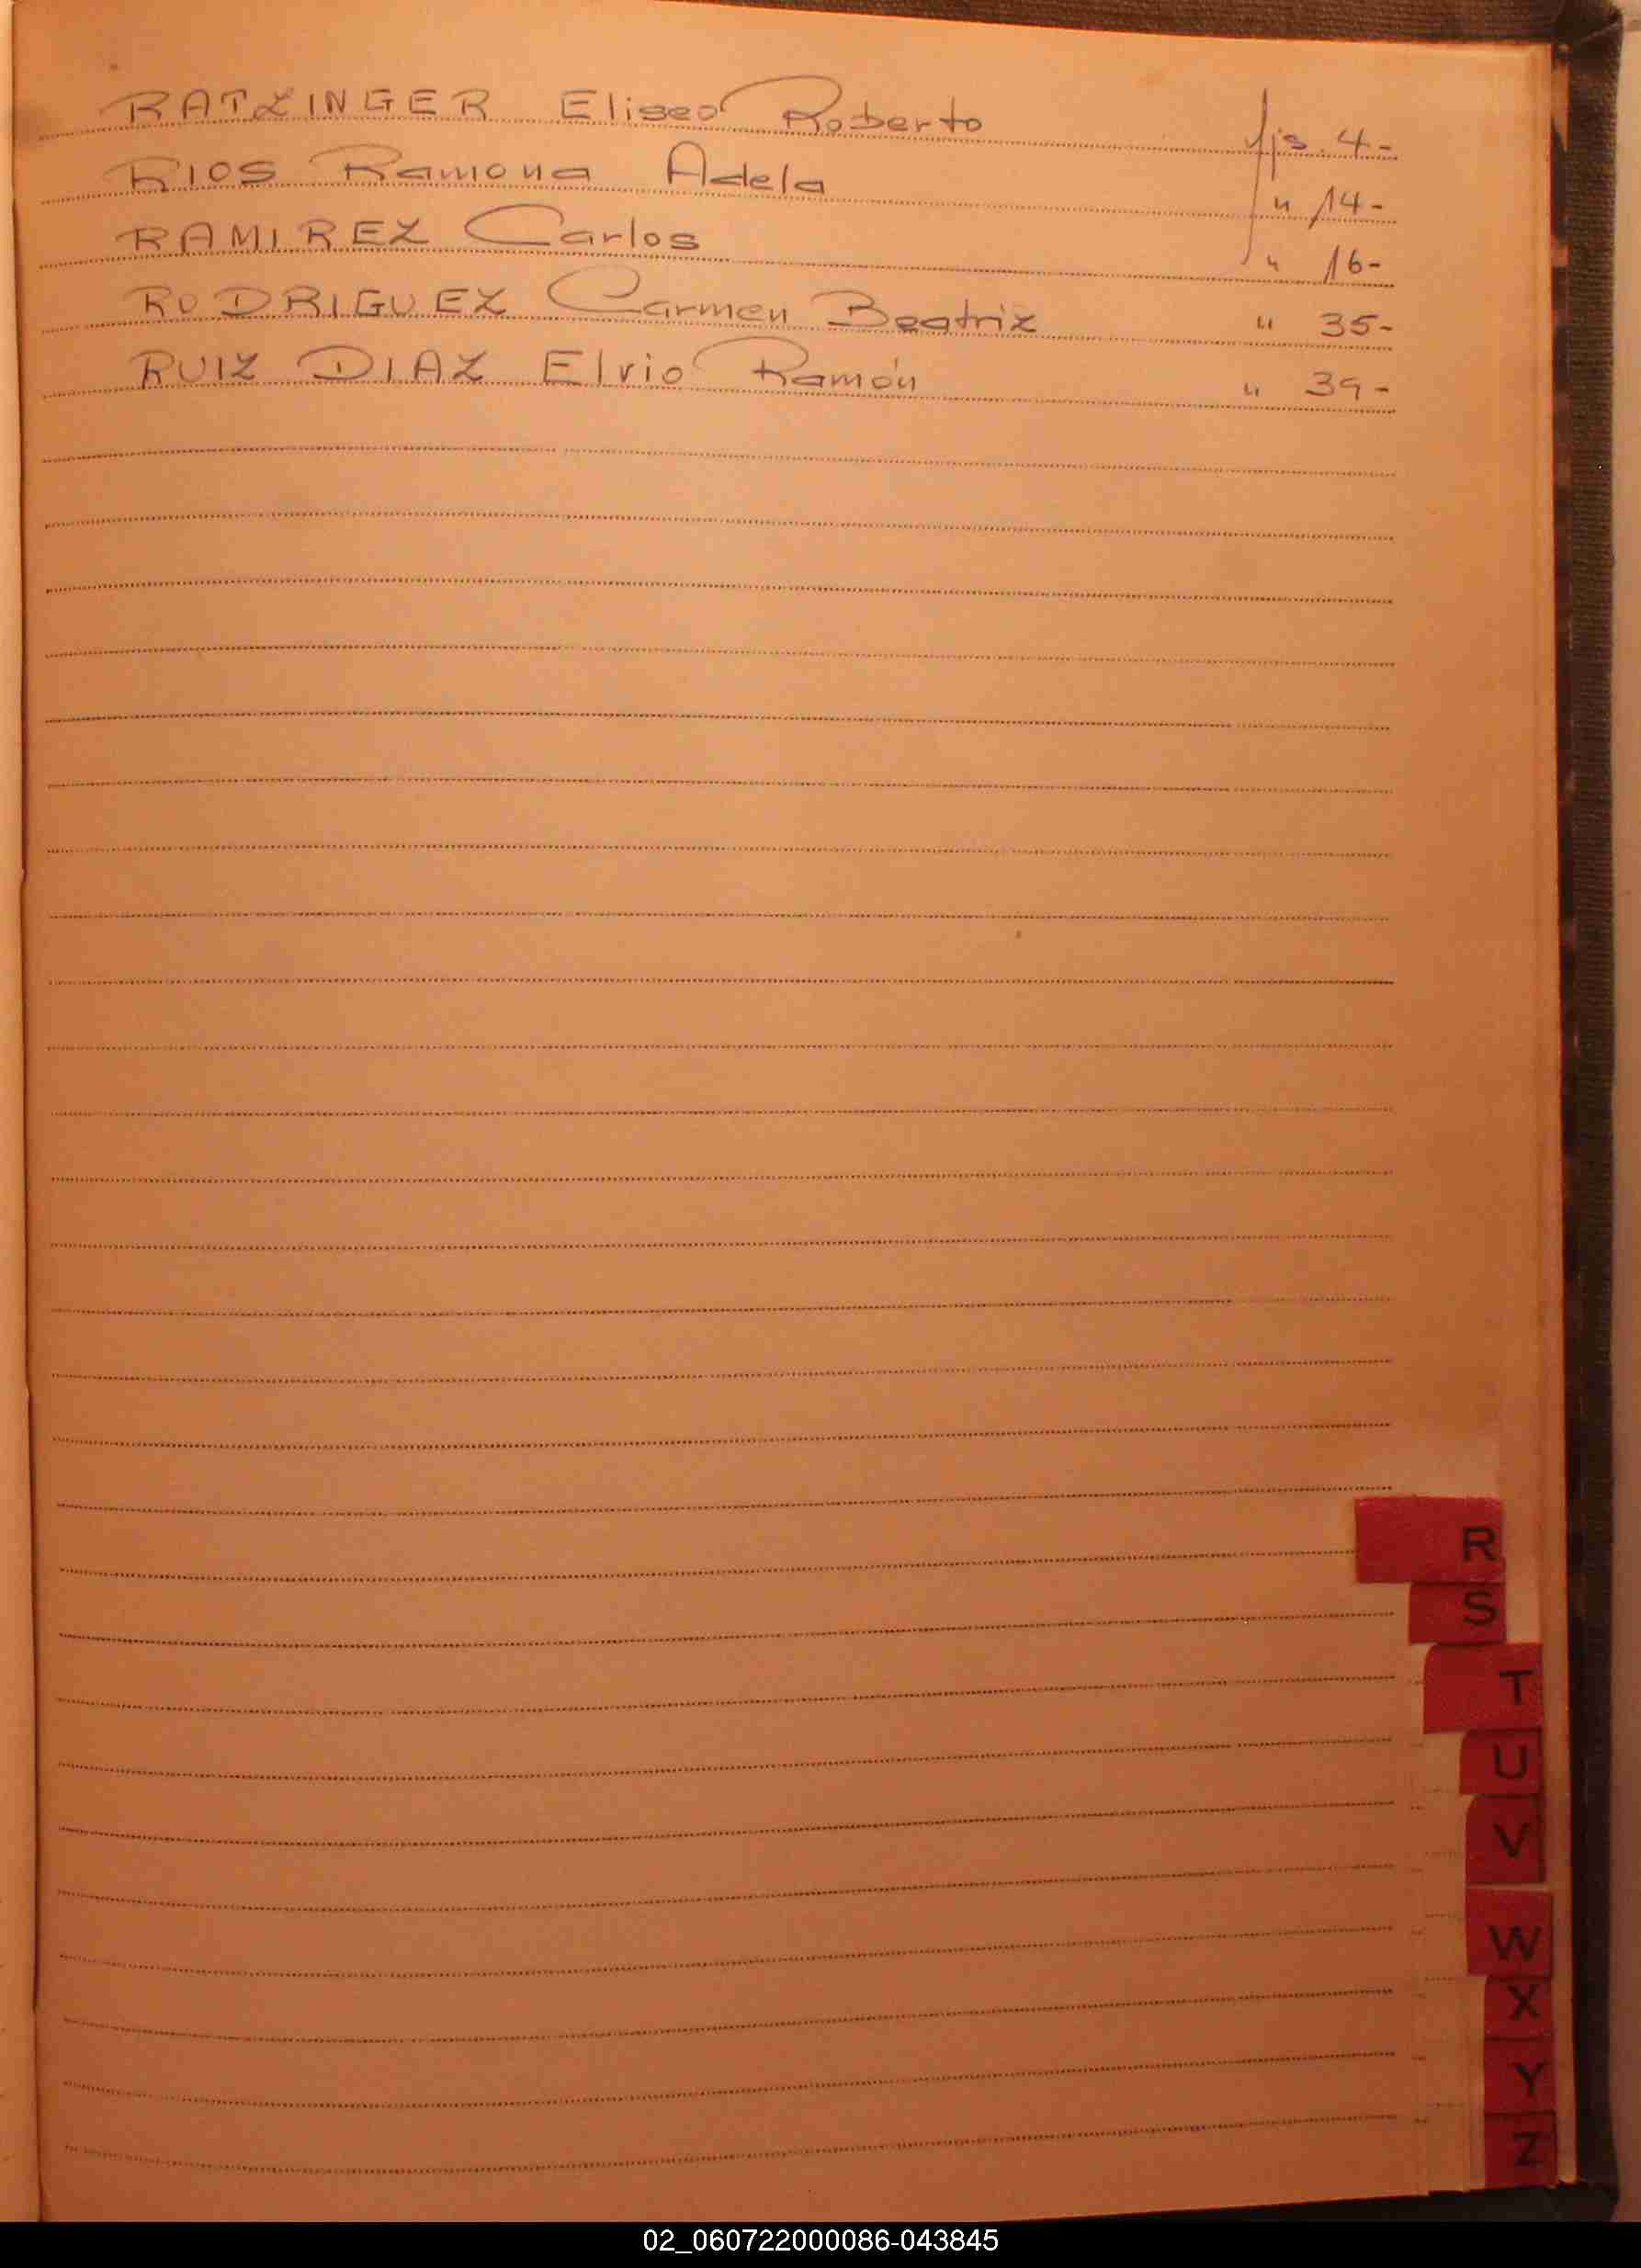 RATZINGER Eliseo Roberto fjs. 4-
RIOS Ramona Adela " 14-
RAMIREZ Carlos " 16-
RODRIGUEZ Carmen Beatriz " 35-
RUIZ DIAZ Elvio Ramón " 39-
R
S
T
U
V
W
X
Y
Z
02_060722000086-043845